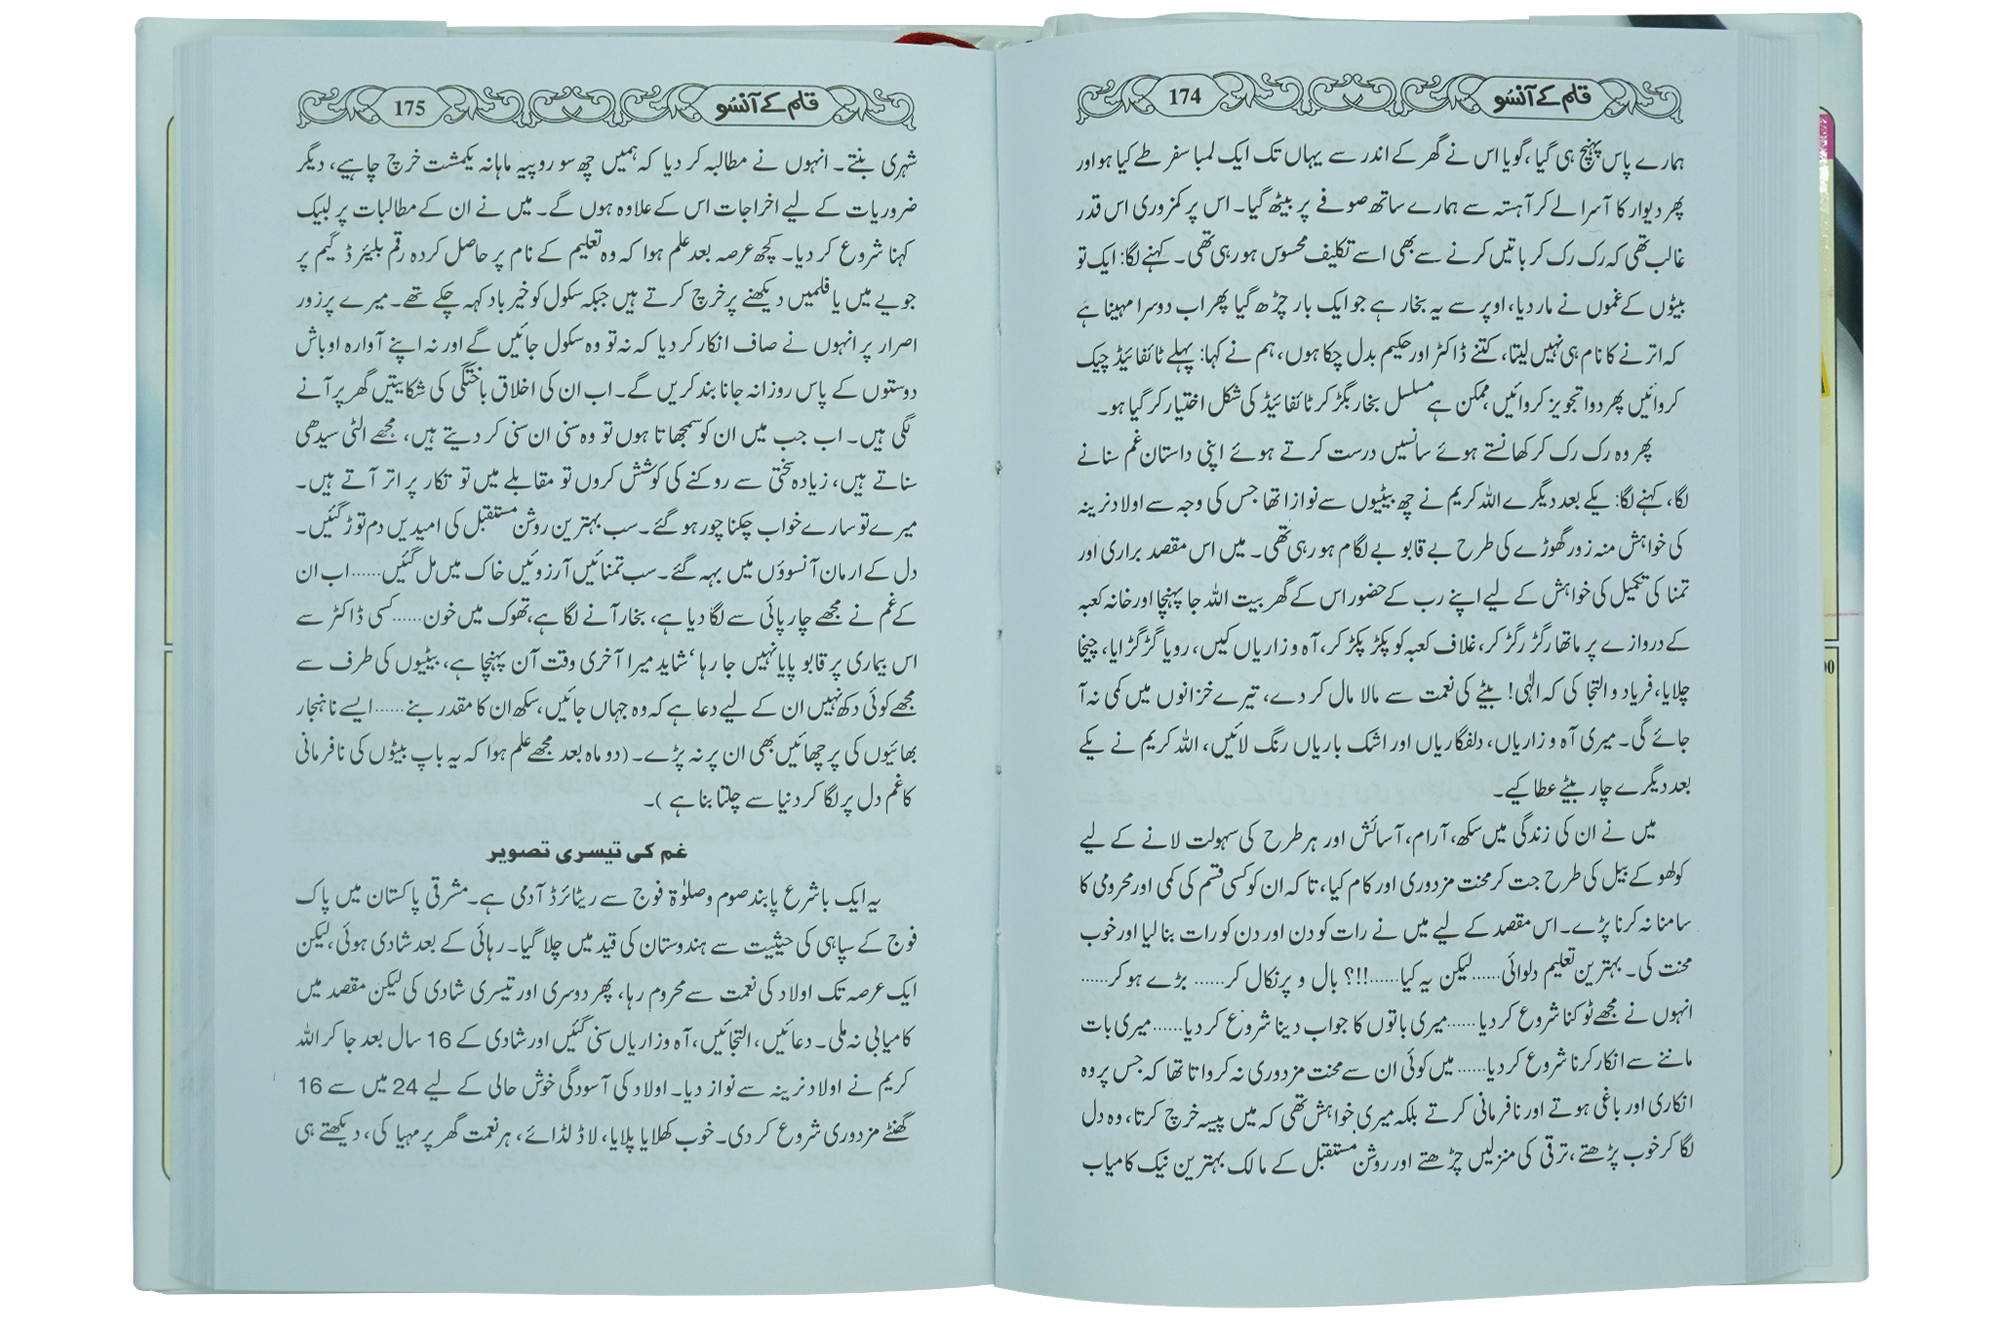 قلم کے آنسو 174
ہمارے پاس پہنچ ہی گیا، گویا اس نے گھر کے اندر سے یہاں تک ایک لمبا سفر طے کیا ہو اور
پھر دیوار کا آسرا لے کر آہستہ سے ہمارے ساتھ صوفے پر بیٹھ گیا۔ اس پر کمزوری اس قدر
غالب تھی کہ رک رک کر باتیں کرنے سے بھی اسے تکلیف محسوس ہو رہی تھی۔ کہنے لگا: ایک تو
بیٹوں کے غموں نے مار دیا، اوپر سے یہ بخار ہے جو ایک بار چڑھ گیا پھر اب دوسرا مہینا ہے
کہ اترنے کا نام ہی نہیں لیتا، کتنے ڈاکٹر اور حکیم بدل چکا ہوں، ہم نے کہا: پہلے ٹائفائیڈ چیک
کروائیں پھر دوا تجویز کروائیں ممکن ہے مسلسل بخار بگڑ کر ٹائفائیڈ کی شکل اختیار کر گیا ہو۔
پھر وہ رک رک کر کھانستے ہوئے سانسیں درست کرتے ہوئے اپنی داستان غم سنانے
لگا، کہنے لگا: یکے بعد دیگرے اللہ کریم نے چھ بیٹیوں سے نوازا تھا جس کی وجہ سے اولاد نرینہ
کی خواہش منہ زور گھوڑے کی طرح بے قابو بے لگام ہو رہی تھی۔ میں اس مقصد براری اور
تمنا کی تکمیل کی خواہش کے لیے اپنے رب کے حضور اس کے گھر بیت اللہ جا پہنچا اور خانہ کعبہ
کے دروازے پر ماتھا رگڑ رگڑ کر، غلاف کعبہ کو پکڑ پکڑ کر، آہ و زاریاں کیں، رویا گڑ گڑایا، چیخا
چلایا، فریاد و التجا کی کہ الٰہی! بیٹے کی نعمت سے مالا مال کر دے، تیرے خزانوں میں کمی نہ آ
جائے گی۔ میری آہ و زاریاں، دلفگاریاں اور اشک باریاں رنگ لائیں، اللہ کریم نے یکے
بعد دیگرے چار بیٹے عطا کیے۔
میں نے ان کی زندگی میں سکھ، آرام، آسائش اور ہر طرح کی سہولت لانے کے لیے
کولھو کے بیل کی طرح جت کر محنت مزدوری اور کام کیا، تاکہ ان کو کسی قسم کی کمی اور محرومی کا
سامنا نہ کرنا پڑے۔ اس مقصد کے لیے میں نے رات کو دن اور دن کو رات بنا لیا اور خوب
محنت کی۔ بہترین تعلیم دلوائی......لیکن یہ کیا......!!؟ بال و پر نکال کر...... بڑے ہو کر......
انہوں نے مجھے ٹوکنا شروع کر دیا......میری باتوں کا جواب دینا شروع کر دیا......میری بات
ماننے سے انکار کرنا شروع کر دیا......میں کوئی ان سے محنت مزدوری نہ کرواتا تھا کہ جس پر وہ
انکاری اور باغی ہوتے اور نافرمانی کرتے بلکہ میری خواہش تھی کہ میں پیسہ خرچ کرتا، وہ دل
لگا کر خوب پڑھتے، ترقی کی منزلیں چڑھتے اور روشن مستقبل کے مالک بہترین نیک کامیاب
قلم کے آنسو 175
شہری بنتے۔ انہوں نے مطالبہ کر دیا کہ ہمیں چھ سو روپیہ ماہانہ یکمشت خرچ چاہیے، دیگر
ضروریات کے لیے اخراجات اس کے علاوہ ہوں گے۔ میں نے ان کے مطالبات پر لبیک
کہنا شروع کر دیا۔ کچھ عرصہ بعد علم ہوا کہ وہ تعلیم کے نام پر حاصل کردہ رقم بلیئرڈ گیم پر
جوئے میں یا فلمیں دیکھنے پر خرچ کرتے ہیں جبکہ سکول کو خیر باد کہہ چکے تھے۔ میرے پرزور
اصرار پر انہوں نے صاف انکار کر دیا کہ نہ تو وہ سکول جائیں گے اور نہ اپنے آوارہ اوباش
دوستوں کے پاس روزانہ جانا بند کریں گے۔ اب ان کی اخلاق باختگی کی شکایتیں گھر پر آنے
لگی ہیں۔ اب جب میں ان کو سمجھاتا ہوں تو وہ سنی ان سنی کر دیتے ہیں، مجھے الٹی سیدھی
سناتے ہیں، زیادہ سختی سے روکنے کی کوشش کروں تو مقابلے میں تو تکار پر اتر آتے ہیں۔
میرے تو سارے خواب چکنا چور ہو گئے۔ سب بہترین روشن مستقبل کی امیدیں دم توڑ گئیں۔
دل کے ارمان آنسوؤں میں بہہ گئے۔ سب تمنائیں آرزوئیں خاک میں مل گئیں......اب ان
کے غم نے مجھے چارپائی سے لگا دیا ہے، بخار آنے لگا ہے، تھوک میں خون......کسی ڈاکٹر سے
اس بیماری پر قابو پایا نہیں جا رہا، شاید میرا آخری وقت آن پہنچا ہے، بیٹیوں کی طرف سے
مجھے کوئی دکھ نہیں ان کے لیے دعا ہے کہ وہ جہاں جائیں، سکھ ان کا مقدر بنے......ایسے ناہنجار
بھائیوں کی پرچھائیں بھی ان پر نہ پڑے۔ (دو ماہ بعد مجھے علم ہوا کہ یہ باپ بیٹوں کی نافرمانی
کا غم دل پر لگا کر دنیا سے چلتا بنا ہے)۔
غم کی تیسری تصویر
یہ ایک باشرع پابند صوم و صلوٰۃ فوج سے ریٹائرڈ آدمی ہے۔ مشرقی پاکستان میں پاک
فوج کے سپاہی کی حیثیت سے ہندوستان کی قید میں چلا گیا۔ رہائی کے بعد شادی ہوئی، لیکن
ایک عرصہ تک اولاد کی نعمت سے محروم رہا، پھر دوسری اور تیسری شادی کی لیکن مقصد میں
کامیابی نہ ملی۔ دعائیں، التجائیں، آہ و زاریاں سنی گئیں اور شادی کے 16 سال بعد جا کر اللہ
کریم نے اولاد نرینہ سے نواز دیا۔ اولاد کی آسودگی خوش حالی کے لیے 24 میں سے 16
گھنٹے مزدوری شروع کر دی۔ خوب کھلایا پلایا، لاڈ لڈائے، ہر نعمت گھر پر مہیا کی، دیکھتے ہی